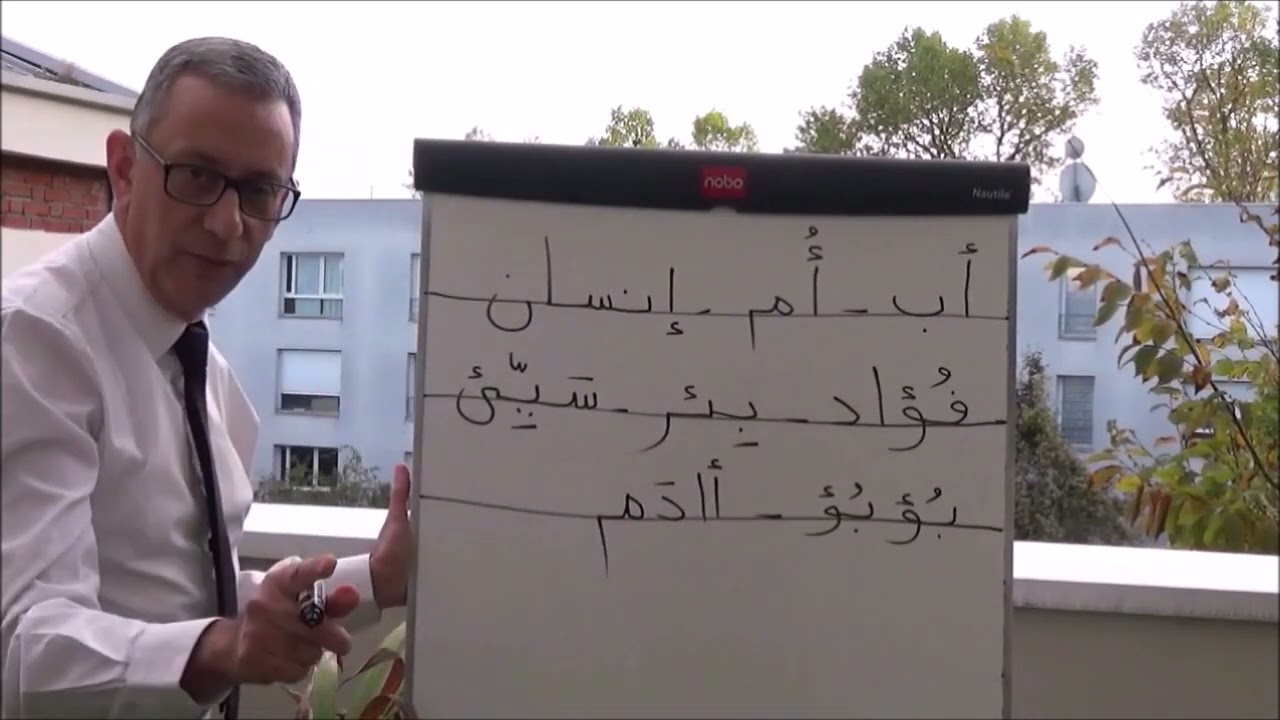 nobo
Nautile
أب - أُم - إنسان
فُؤاد - بِئر - سَيِّئ
بُؤبُؤ - أادَم